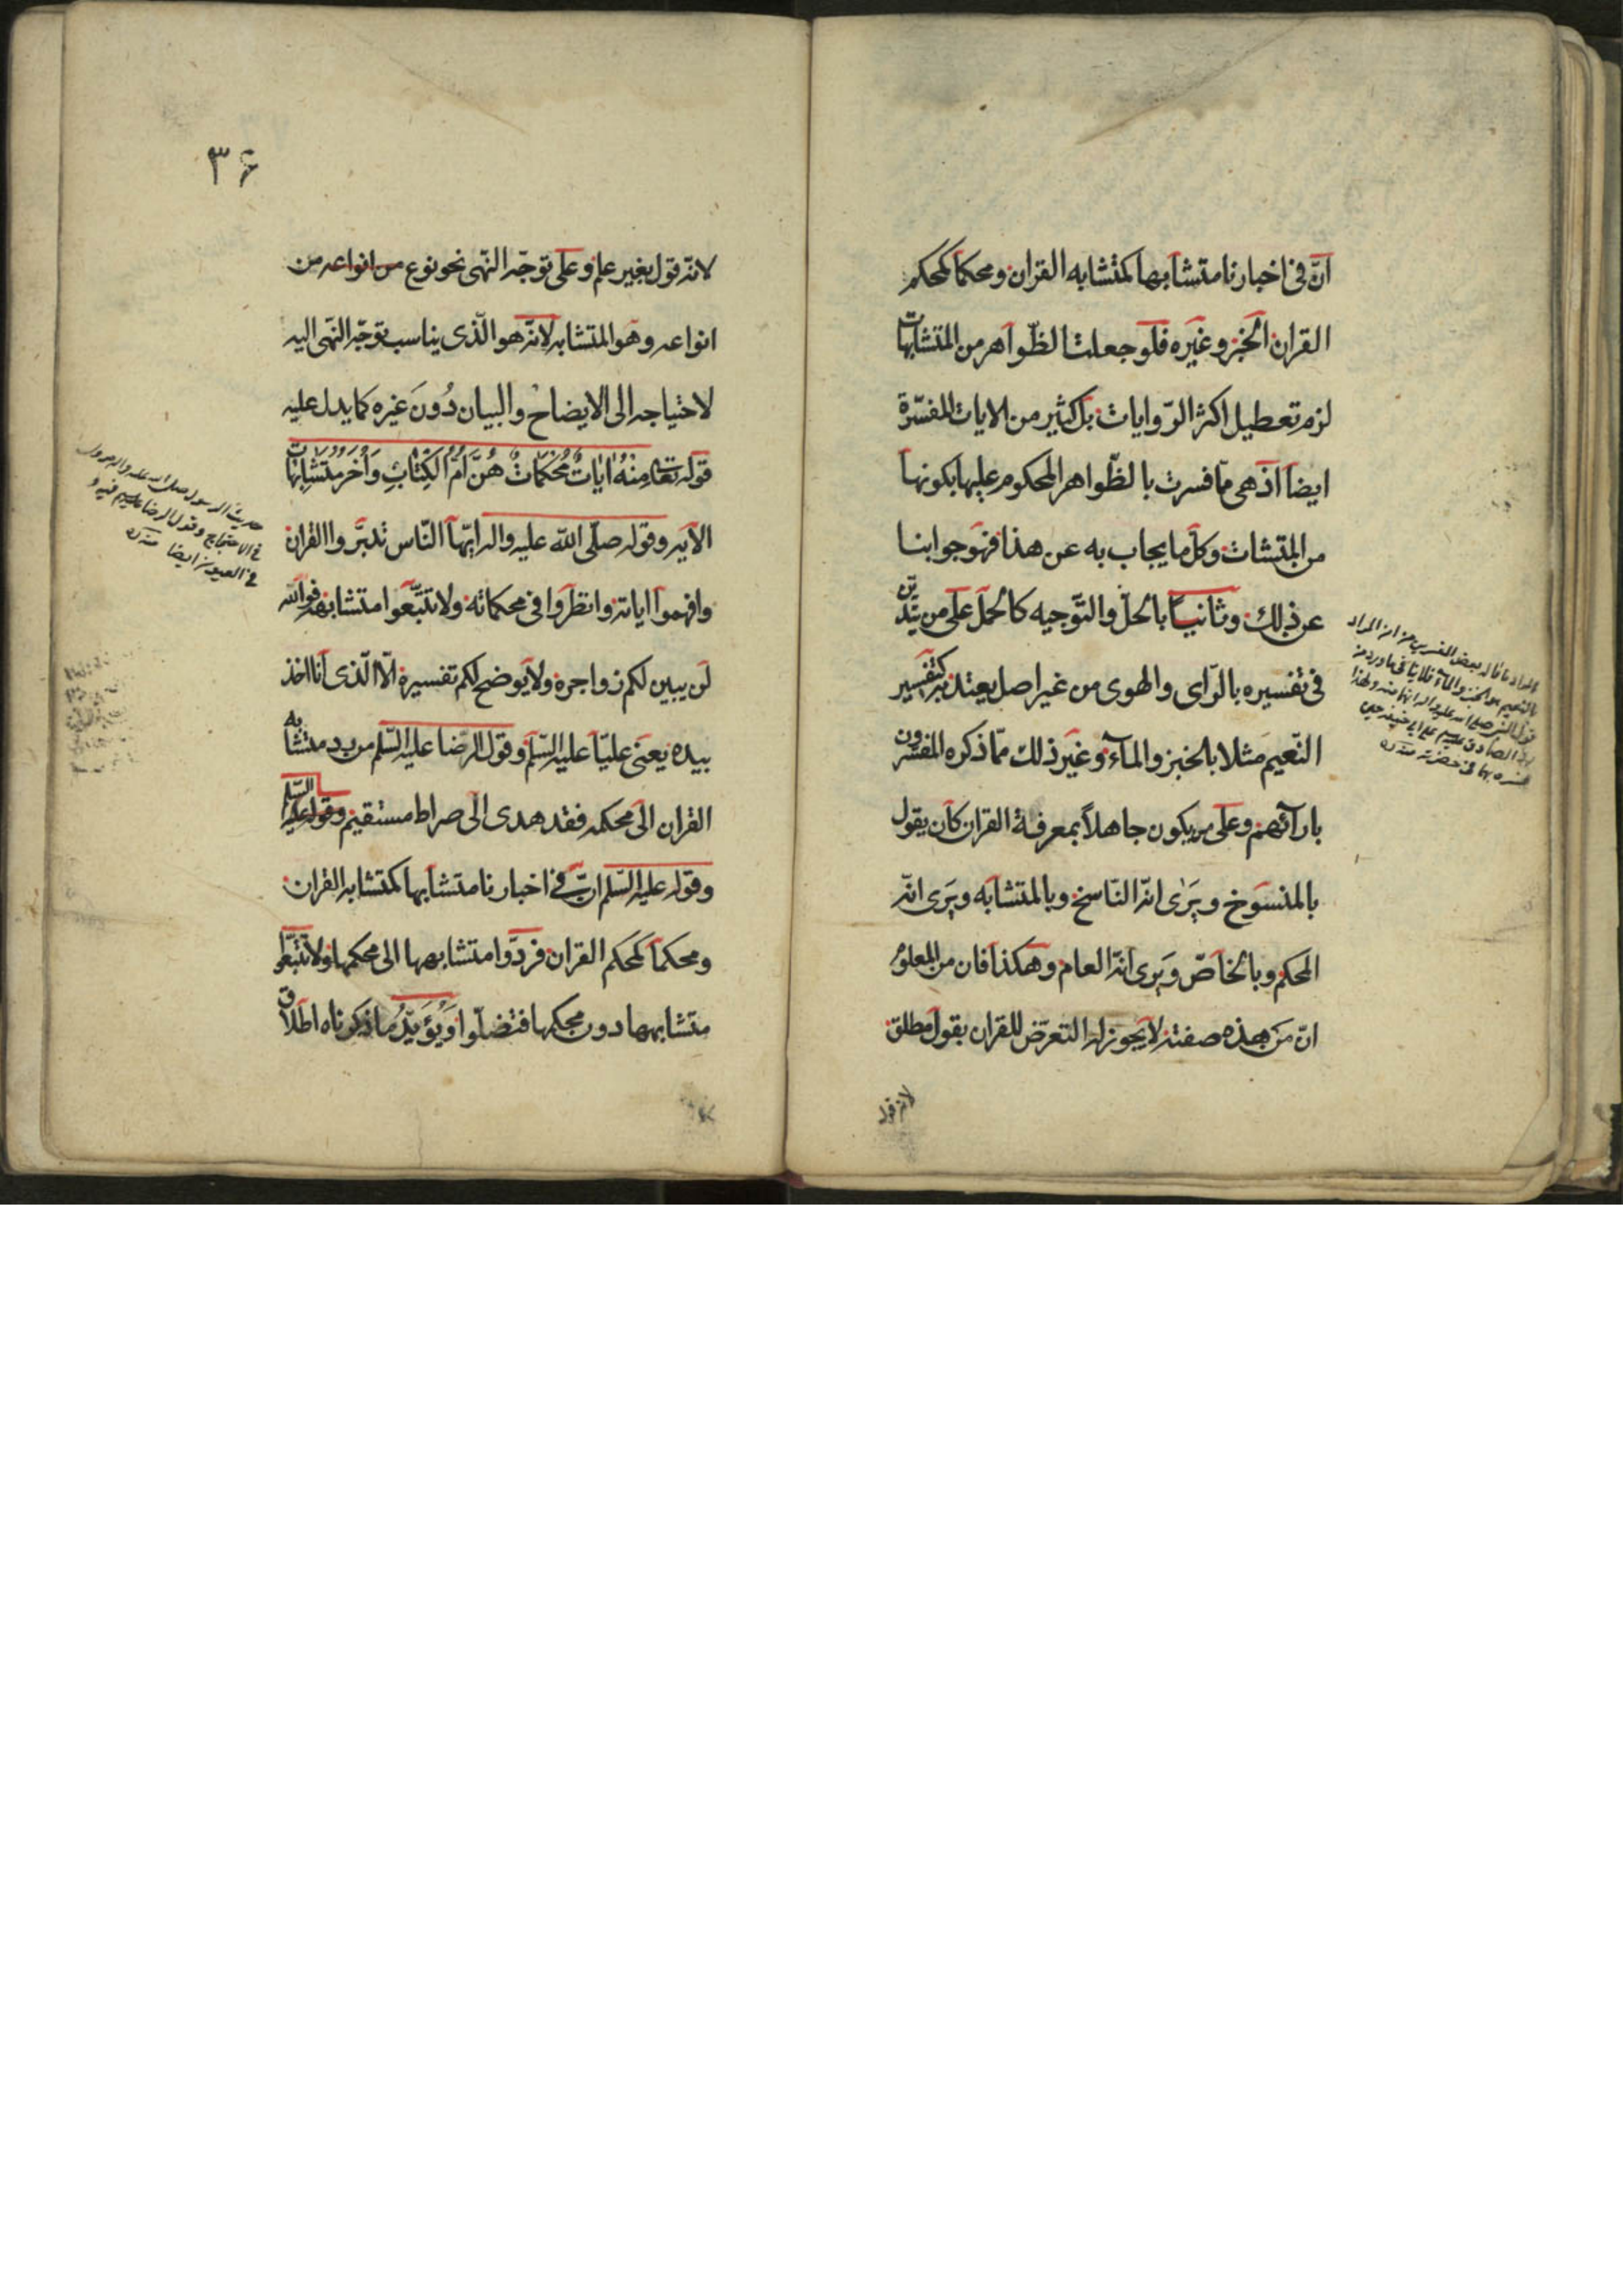 انّ فى اخبارنا متشابها كمتشابه القران ومحكما كمحكم
القران الخبر وغيره فلو جعلت الظّواهر من المتشابهات
لزم تعطيل اكثر الرّوايات بل كثير من الايات المفسّرة
ايضا اذ هى ممّا فسرت بالظّواهر المحكوم عليها بكونها
من المتشات وكلّ ما يجاب به عن هذا فهو جوابنا
عن ذلك وثانيا بالحلّ والتّوجيه كالحمل على من يتديّن
فى تفسيره بالرّاى والهوى من غير اصل يعتد به كتفسير
النّعيم مثلا بالخبز والمآء وغير ذلك ممّا ذكره المفسّرون
بارآئهم وعلى من يكون جاهلاً بمعرفة القران كأن يقول
بالمنسوخ ويرى انّه النّاسخ وبالمتشابه ويرى انّه
المحكم وبالخاصّ ويرى انّه العام وهكذا فان من المعلوم
انّ من هذه صفته لا يجوز له التعرّض للقران بقول مطلق
لانه قول
المراد
ما قاله بعض المفسرين من ان المراد
بالنعيم هو الخبز والمآء فلا ينافى ما ورد من
قول النبى صلى الله عليه واله
الصادق على ابى حنيفة حين
فسره بها فى حضرته منه
٣۶
لانّه قول بغير علم وعلى توجّه النّهى نحو نوع من انواعه من
انواعه وهو المتشابه لانّه هو الّذى يناسب توجّه النّهى اليه
لاحتياجه الى الايضاح والبيان دُونَ غيره كما يدل عليه
قوله تعالى مِنْهُ اٰيٰاتٌ مُحْكَمٰاتٌ هُنَّ اُمُّ الْكِتٰابِ وَاُخَرُ مُتَشٰابِهٰاتٌ
الآيه وقوله صلّى اللّه عليه واله ايّها النّاس تدبّروا القران
وافهموا اياته وانظروا فى محكماته ولا تتّبعوا متشابهه فوالله
لن يبين لكم زواجره ولا يوضح لكم تفسيره الّا الّذى أنا اخذ
بيده يعنى عليّا عليه السّلم وقول الرّضا عليه السّلم من رد متشابه
القران الى محكمه فقد هدى الى صراط مستقيم وقوله عليه السّلم
وقوله عليه السّلم انّ فى اخبارنا متشابها كمتشابه القران
ومحكما كمحكم القران فردّوا متشابهها الى محكمها ولا تتّبعوا
متشابهها دون محكمها فتضلّوا وَيُؤيّدُ ما ذكرناه اطلاق
حديث الرسول صلى الله عليه واله
فى الاحتجاج وقول الرضا عليه السلم فيه و
فى العيون ايضا منه